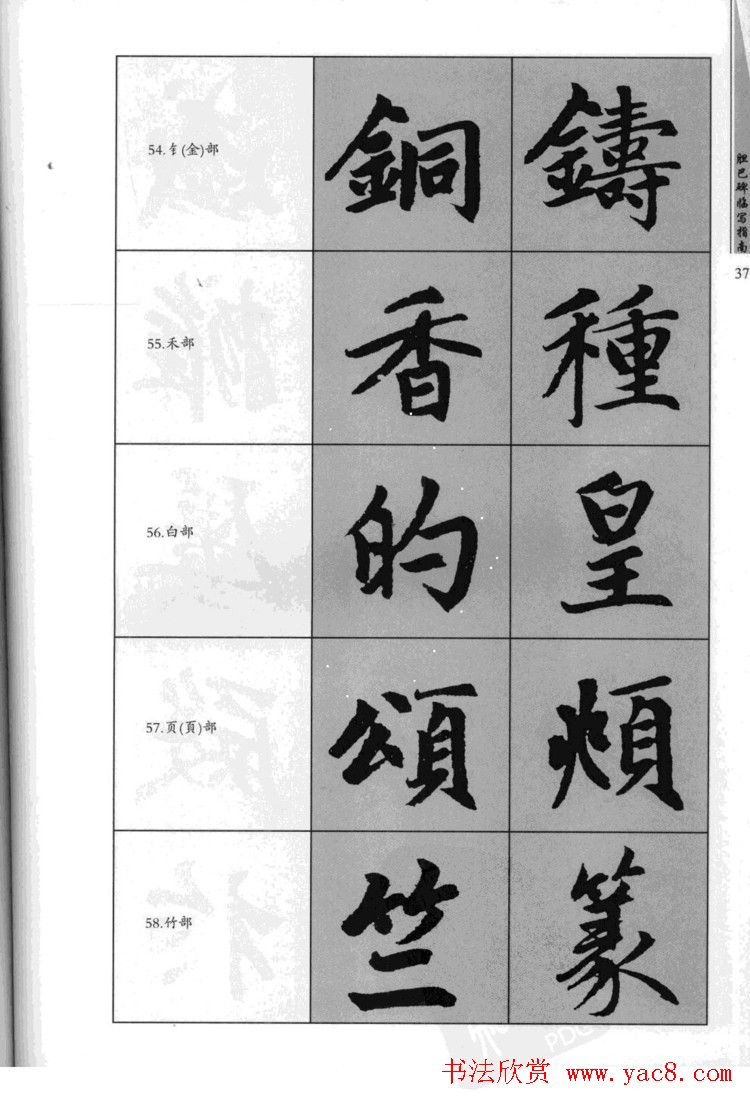 胆巴碑临写指南
37
54.钅(金)部 銅 鑄
55.禾部 香 種
56.白部 的 皇
57.页(頁)部 頌 頫
58.竹部 竺 篆
PDG
书法欣赏 www.yac8.com